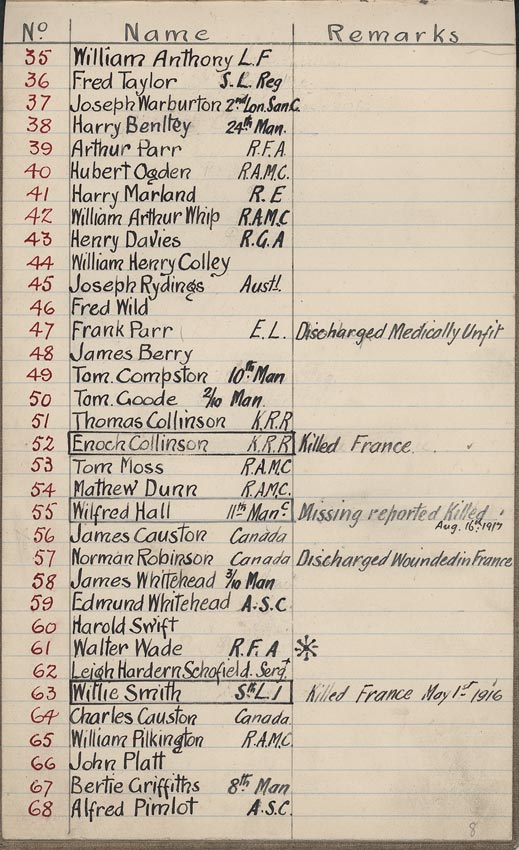 No Name Remarks
35 William Anthony L.F
36 Fred Taylor S.L. Reg
37 Joseph Warburton 2nd Lon. San C.
38 Harry Benltey 24th Man.
39 Arthur Parr R.F.A
40 Hubert Ogden R.A.M.C.
41 Harry Marland R.E
42 William Arthur Whip R.A.M.C
43 Henry Davies R.G.A
44 William Henry Colley
45 Joseph Rydings Austl.
46 Fred Wild
47 Frank Parr E.L. Discharged Medically Unfit
48 James Berry
49 Tom. Compston 10th Man
50 Tom. Goode 2/10 Man.
51 Thomas Collinson K.R.R
52 Enoch Collinson K.R.R Killed France
53 Tom Moss R.A.M.C
54 Mathew Dunn R.A.M.C.
55 Wilfred Hall 11th Manc Missing reported Killed
Aug. 16th 1917
56 James Causton Canada
57 Norman Robinson Canada Discharged Wounded in France
58 James Whitehead 3/10 Man
59 Edmund Whitehead A.S.C
60 Harold Swift
61 Walter Wade R.F.A
62 Leigh Hardern Schofield. Sergt
63 Willie Smith Sth L.I Killed France May 1st 1916
64 Charles Causton Canada
65 William Pilkington R.A.M.C.
66 John Platt
67 Bertie Griffiths 8th Man
68 Alfred Pimlot A.S.C.
8